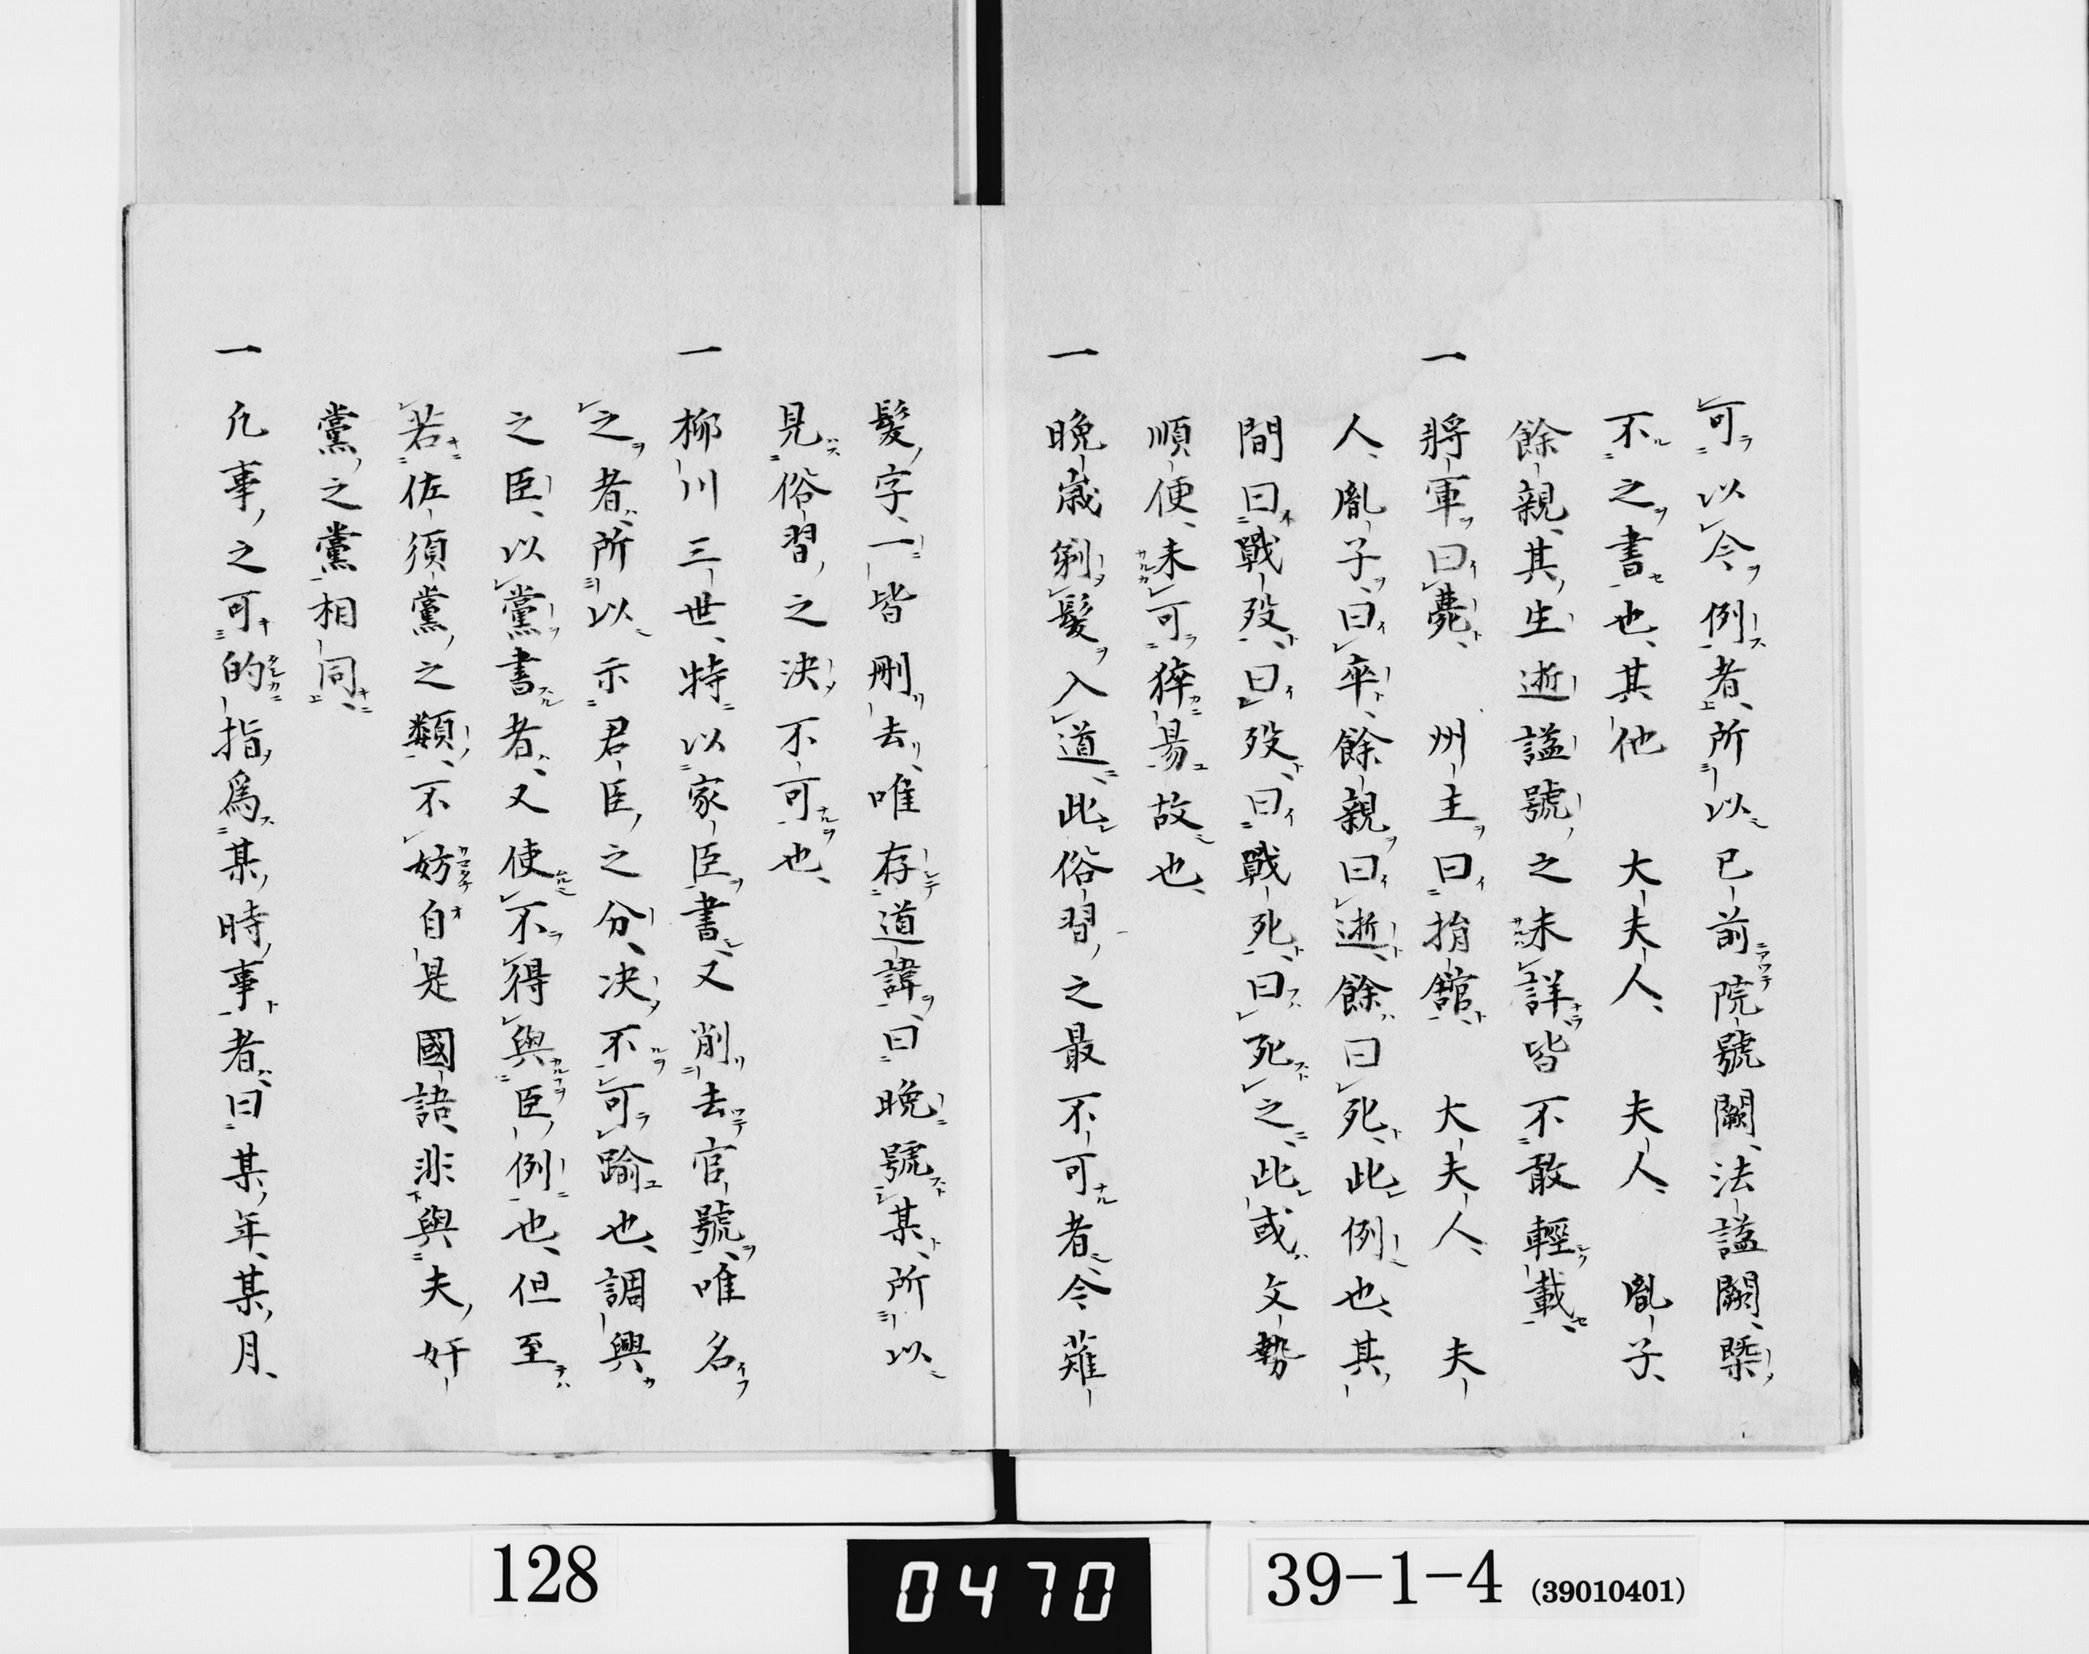 可以今例者、所以已前院號闕、法謚闕、槩
不之書也、其他　大夫人、　夫人、　胤子、
餘親、其生逝謚號之未詳皆不敢輕載、
一　將軍曰薨、　州主曰捐館、　大夫人、　夫
人、胤子、曰卒、餘親曰逝、餘曰死、此例也、其
間曰戰歿、曰歿、曰戰死、曰死之、此或文勢
順便、未可猝易故也、
一　晩歳剃髮入道、此俗習之最不可者、今薙
髮字、一皆刪去、唯存道諱、曰晩號某、所以
見俗習之決不可也、
一　柳川三世、特以家臣書、又削去官號、唯名
之者、所以示君臣之分、决不可踰也、調興
之臣、以黨書者、又使不得與臣例也、但至
若佐須黨之類、不妨自是國語、非與夫奸
黨之黨相同、
一　凡事之可的指爲某時事者、曰某年、某月、
128
0470
39-1-4 (39010401)